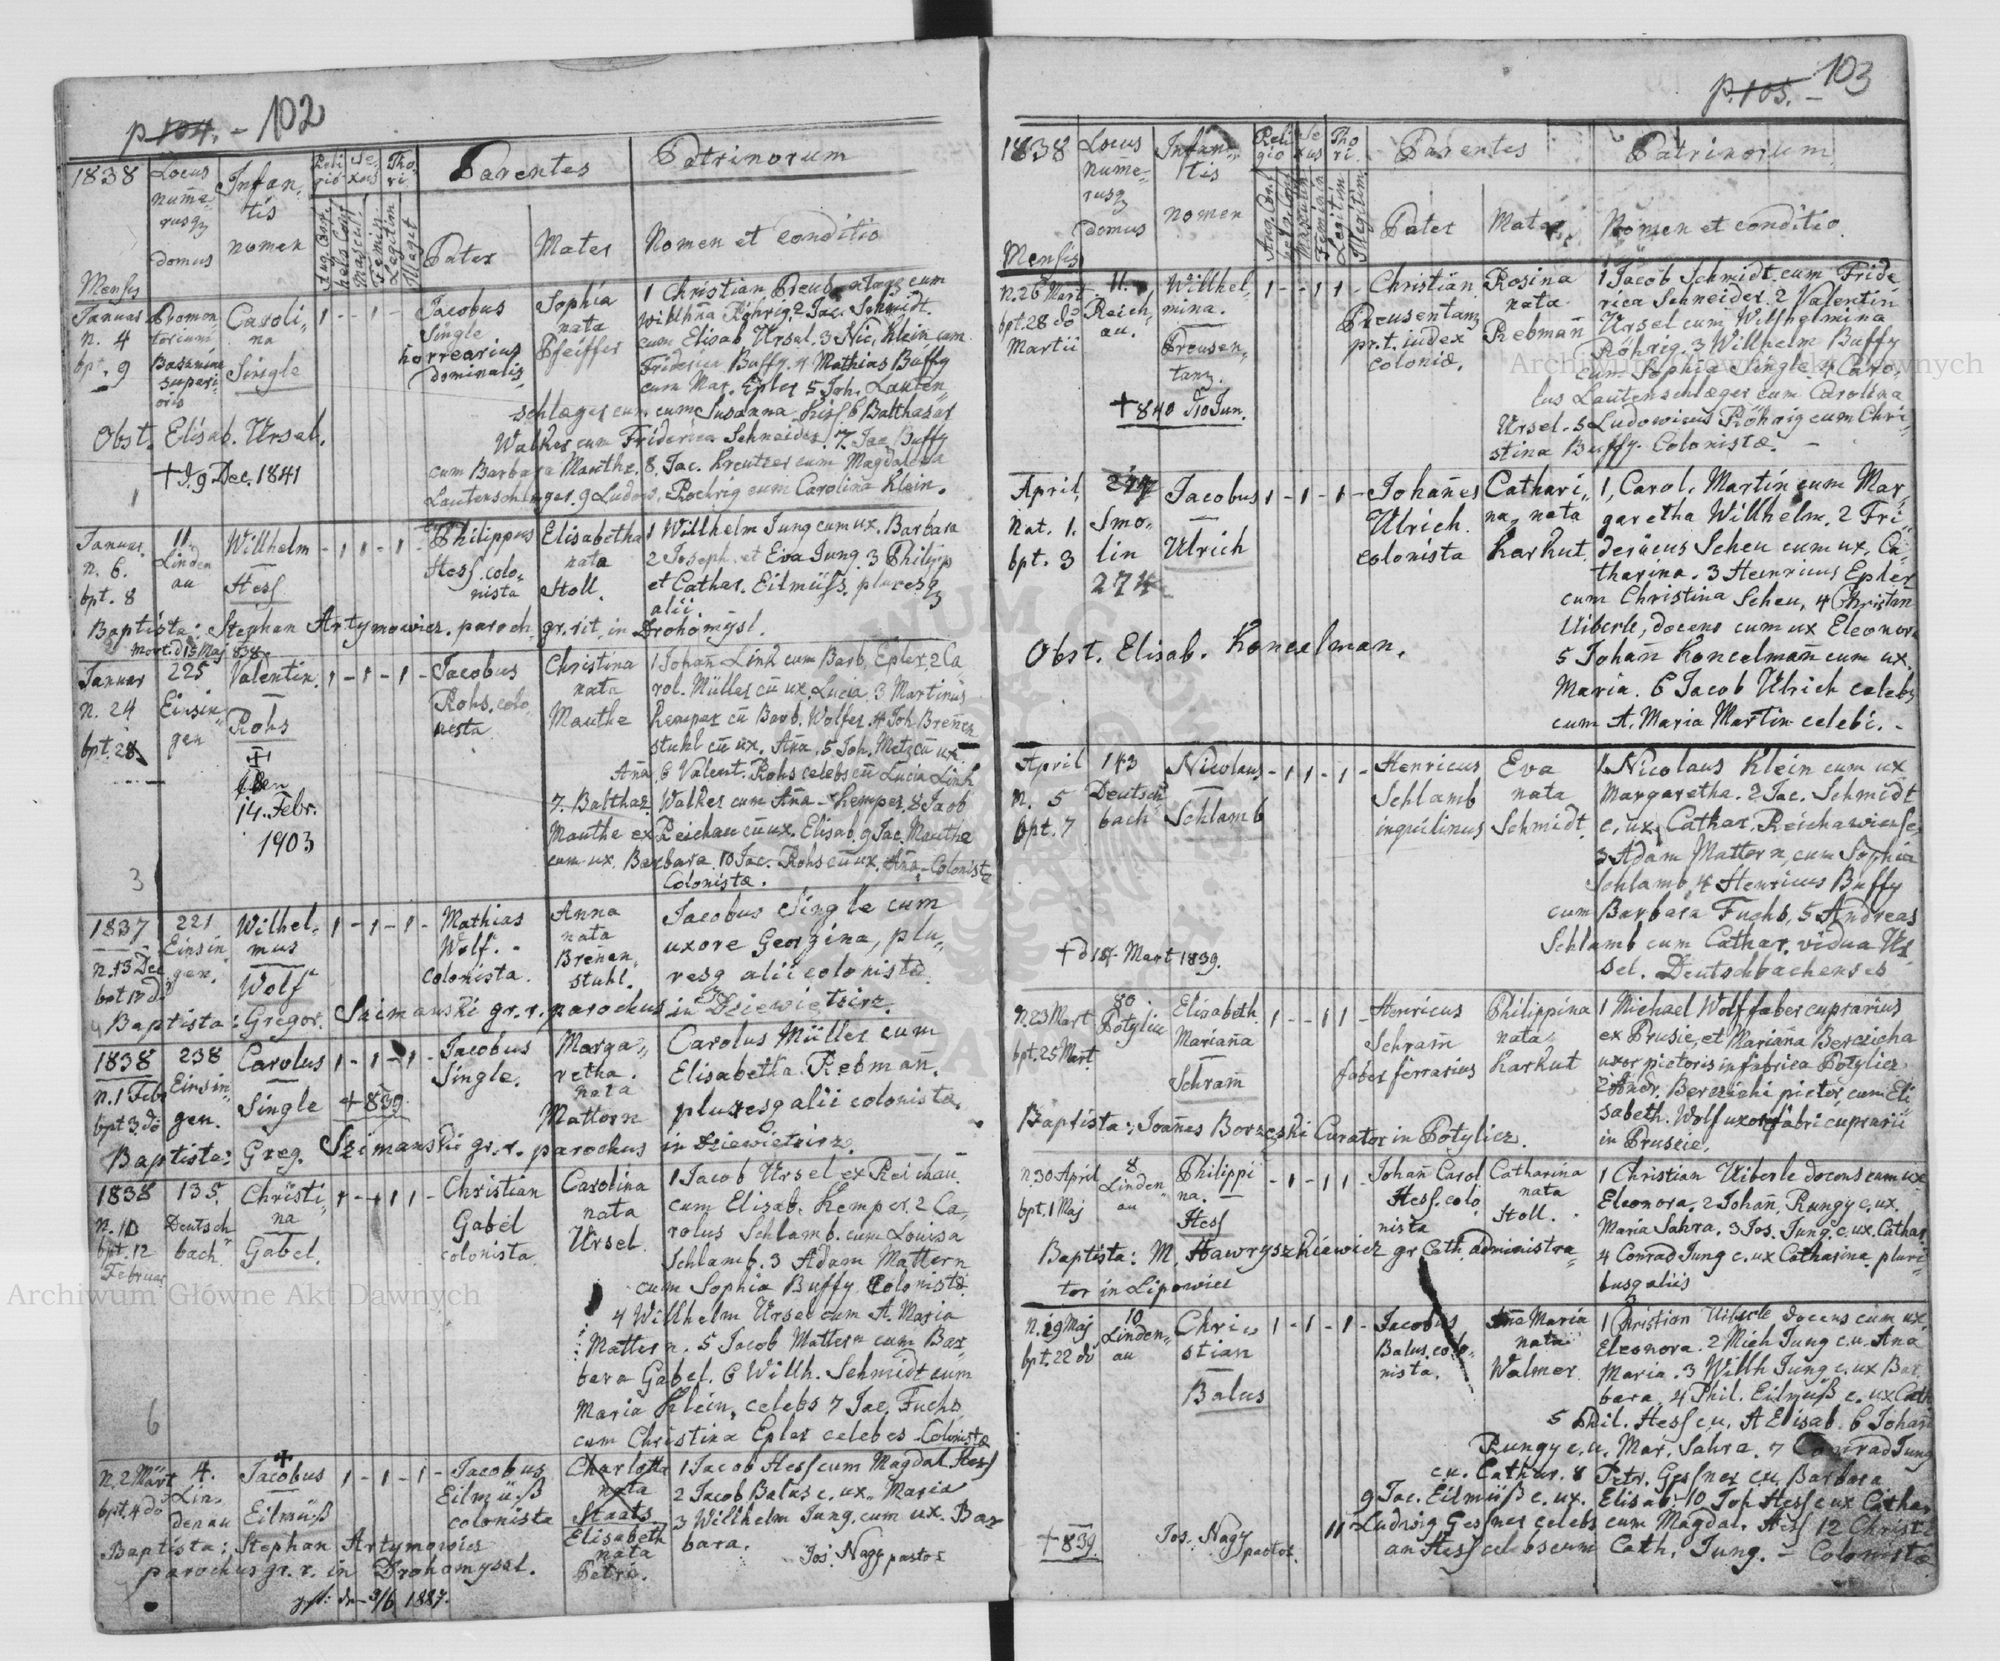 p. 104. - 102
1838
Locus
nume-
rusq
domus
Infan-
tis
nomen
Reli
gio
Se-
xus
Tho-
ri
Aug. Conf.
helv. Conf
Mascul.
Femin
Legitim
Illegit
Parentes
Pater
Mater
Patrinorum
Nomen et conditio
Mensis
Januar
n. 4
bpt. 9
Promon-
torium
superi-
oris
Caroli-
na
Single
1 - - 1 - 1 -
Jacobus
Single
horrearius
dominalis
Sophia
nata
Pfeiffer
1 Christian cum
Willhna Röhrig, 2 Jac. Schmidt
cum Elisab. Ursel. 3 Nic. Klein cum
Friderica Buffy. 4 Mathias Buffy
cum Mar. Epler 5 Joh. Lauten-
schlæger cum cum Susanna Kiss 6 Balthasar
Walker cum Friderica Schneider. 7. Jac. Buffy
cum Barbara Manthe. 8. Jac. Kreutzer cum Magdalena
Lautenschlæger. 9 Ludov. Roehrig cum Carolina Klein.
Obst. Elisab. Ursel.
+ J. 9 Dec. 1841
1
Januar.
n. 6.
bpt. 8
11.
Linden
au
Willhelm
Hess
- 1 1 - 1 -
Philippus
Hess. colo-
nista
Elisabetha
nata
Stoll.
1 Willhelm Jung cum ux. Barbara
2 Joseph. et Eva Jung. 3 Philipp
et Cathar. Eilmüss. pluresq
alii.
Baptista: Stephan Artymowicz. paroch. gr. rit. in Drohomysl.
mort. d 15 Maj 838
Januar
n. 24
bpt. 28
225
Einsin-
gen
Valentin.
Rohs
+
den
14. Febr.
1903
1 - 1 - 1 -
Jacobus
Rohs. colo-
nista
Christina
nata
Manthe
1 Johañ Link cum Barb. Epler. 2 Ca
rol. Müller cũ ux. Lucia. 3 Martinus
Kemper cũ Barb. Wolfer. 4 Joh Breñen
stuhl cũ ux. Aña. 5 Joh. Metz cũ ux.
Aña 6 Valent. Rohs celebs cũ Lucia Link
7. Balthaz. Walker cum Aña - Kemper. 8 Jacob
Manthe ex Reichau cũ ux. Elisab. 9 Jac. Manthe
cum ux. Barbara 10 Jac. Rohs cũ ux. Aña - Colonistæ
Colonistæ.
3
1837
n. 13 Dec
bpt 17 do
221
Einsin
gen.
Wilhel-
mus
Wolf
1 - 1 - 1 -
Mathias
Wolf. -
colonista.
Anna
nata
Breñen-
stuhl.
Jacobus Single cum
uxore Georgina, plu-
resq alii colonistæ
4 Baptista: Gregor. Szimanski gr. r. parochus in Dziewietsirz.
1838
n. 1 Febr
bpt 3. do
238
Einsin-
gen.
Carolus
Single
+ 839
1 - 1 - 1 -
Jacobus
Single.
Marga-
retha.
nata
Mattern
Carolus Müller cum
Elisabetha. Rebmañ.
pluresq alii colonistæ.
Baptista: Greg. Szimanski gr. r. parochus in Dziewietsirz.
1838
n. 10
bpt. 12
Februar
135.
Deutsch
bach
Christi-
na
Gabel.
1 - - 1 1 -
Christian
Gabel
colonista
Carolina
nata
Ursel.
1 Jacob Ursel ex Reichau
cum Elisab. Kemper. 2 Ca-
rolus Schlamb. cum Louisa
Schlamb. 3 Adam Mattern
cum Sophia Buffy Colonistæ.
4 Willhelm Ursel cum A. Maria
Mattern. 5 Jacob Mattern cum Bar-
bara Gabel. 6 Willh. Schmidt cum
Maria Klein, celebs 7 Jac. Fuchs
cum Christina Epler celebes Colonistæ
6
n. 2 Märt
bpt. 4 do
4.
Lin-
denau
+
Jacobus
Eilmüß
1 - 1 - 1 -
Jacobus
Eilmüß
colonista
Charlotta
nata
Staats
Elisabeth
nata
Petri.
1 Jacob Hess cum Magdal. Hess
2 Jacob Balus c. ux. Maria
3 Willhelm Jung. cum ux. Bar
bara.
Jos. Nagy pastor
Baptista: Stephan Artymowicz
parochus gr. r. in Drohomysel.
3/6 1887.
p. 105. - 103
1838
Locus
nume-
rusq
domus
Infan-
tis
nomen
Reli
gio
Se
xus
Tho
ri.
Aug. Conf.
helv. Conf
Mascul
Feminin
Legitim
Illegitim
Parentes
Pater
Mater
Patrinorum
Nomen et conditio.
Mensis
n. 26 Mart
bpt. 28 do
Martii
11.
Reich-
au.
Willhel-
mina.
Preusen-
tanz.
1 - - 1 1 -
Christian
Preusentanz
pr. t. iudex
coloniæ.
Rosina
nata
Rebmañ
1 Jacob Schmidt cum Fride-
rica Schneider. 2 Valentin
Ursel cum Wilhelmina
Röhrig. 3 Willhelm Buffy
cum Sophia Single. 4 Caro-
lus Lautenschlæger cum Carolina
Ursel. 5 Ludowicus Röhrig cum Chri-
stina Buffy. Colonistæ. -
+ 840 10 Jun.
April
Nat. 1.
bpt. 3
Smo-
lin
274
Jacobus
Ulrich
1 - 1 - 1 -
Johañes
Ulrich.
colonista
Cathari-
na, nata
Karkut.
1, Carol. Martin cum Mar-
garetha Willhelm. 2 Fri-
dericus Scheu cum ux. Ca-
tharina. 3 Heinricus Epler
cum Christina Scheu, 4 Christan
Uiberle, docens cum ux Eleonora
5 Johañ Koncelmañ cum ux.
Maria. 6 Jacob Ulrich celebs
cum A. Maria Martin celebi. -
Obst. Elisab. Koncelman.
April
n. 5
bpt. 7
143
Deutsch
bach
Nicolaus
Schlamb
- 1 1 - 1 -
Henricus
Schlamb
inquilinus
Eva
nata
Schmidt
1 Nicolaus Klein cum ux
Margaretha. 2 Jac. Schmidt
c. ux. Cathar. Reichawienses
3 Adam Mattern, cum Sophia
Schlamb, 4 Henricus Buffy
cum Barbara Fuchs, 5 Andreas
Schlamb cum Cathar. vidua Ur-
sel. Deutschbachenses
+ d 18 Mart 1839.
n. 23 Mart
bpt. 25 Mart.
80
Potylicz
Elisabeth.
Mariaña
Schrañ
1 - - 1 1 -
Henricus
Schrañ
faber ferrarius
Philippina
nata
Karkut
1 Michael Wolf faber cuprarius
ex Prusie, et Mariaña Berezicha
uxor pictoris in fabrica Potylicz
2 Andr. Berezichi pictor, cum Eli
sabeth. Wolf uxor fabri cuprarii
in Pruszie.
Baptista: Joañes Borzeski Curator in Potylicz.
n. 30 April
bpt. 1 Maj
8
Linden-
au
Philippi
na.
Hess
- 1 - 1 1 -
Johañ Carol
Hess. colo
nista
Catharina
nata
Stoll.
1 Christian Uiberle docens cum ux
Eleonora. 2 Johañ. Rungy c. ux.
Maria Sahra. 3 Jos. Jung. c. ux. Cathar.
4 Conrad Jung c. ux Catharina. pluri-
busq aliis
Baptista: M. Hawryszkiewicz gr. Cath. administra-
tor in Lipowiec
n. 19 Maj
bpt. 22 do
10
Linden-
au
Chri-
stian
Balus
1 - 1 - 1 -
Jacobus
Balus. colo-
nista.
Aña Maria
nata
Walmer.
1 Christian Uiberle docens cum ux.
Eleonora. 2 Mich Jung c. u. Aña
Maria. 3 Willh Jung c. ux Bar
bara. 4 Phil. Eilmüß c. ux Cath
5 Phil. Hess c. u. A Elisab. 6 Johañ
Rungy c. u. Mar. Sahra. 7 Conrad Jung
c. u. Cathar. 8 Petr. Gessner c. u. Barbara
9 Jac. Eilmüß c. ux. Elisab. 10 Joh Hess c ux Cathar
11 Ludwig Gessner celebs cum Magdal. Hess 12 Christi
an Hess celebs cum Cath. Jung. - Colonistæ
+ 839.
Jos. Nagy pastor.
Archiwum Główne Akt Dawnych
Archiwum Główne Akt Dawnych